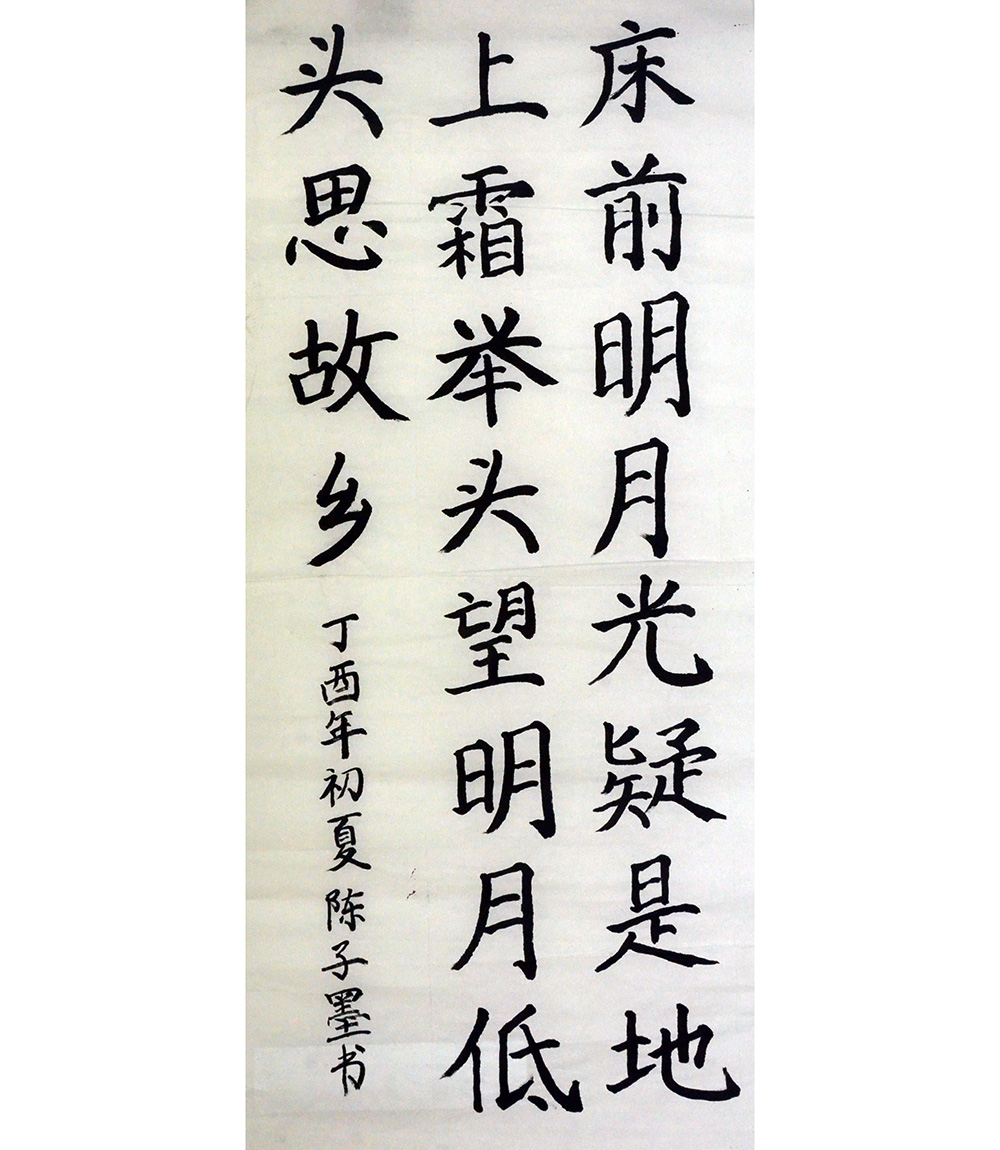 床前明月光疑是地
上霜举头望明月低
头思故乡
丁酉年初夏陈子墨书